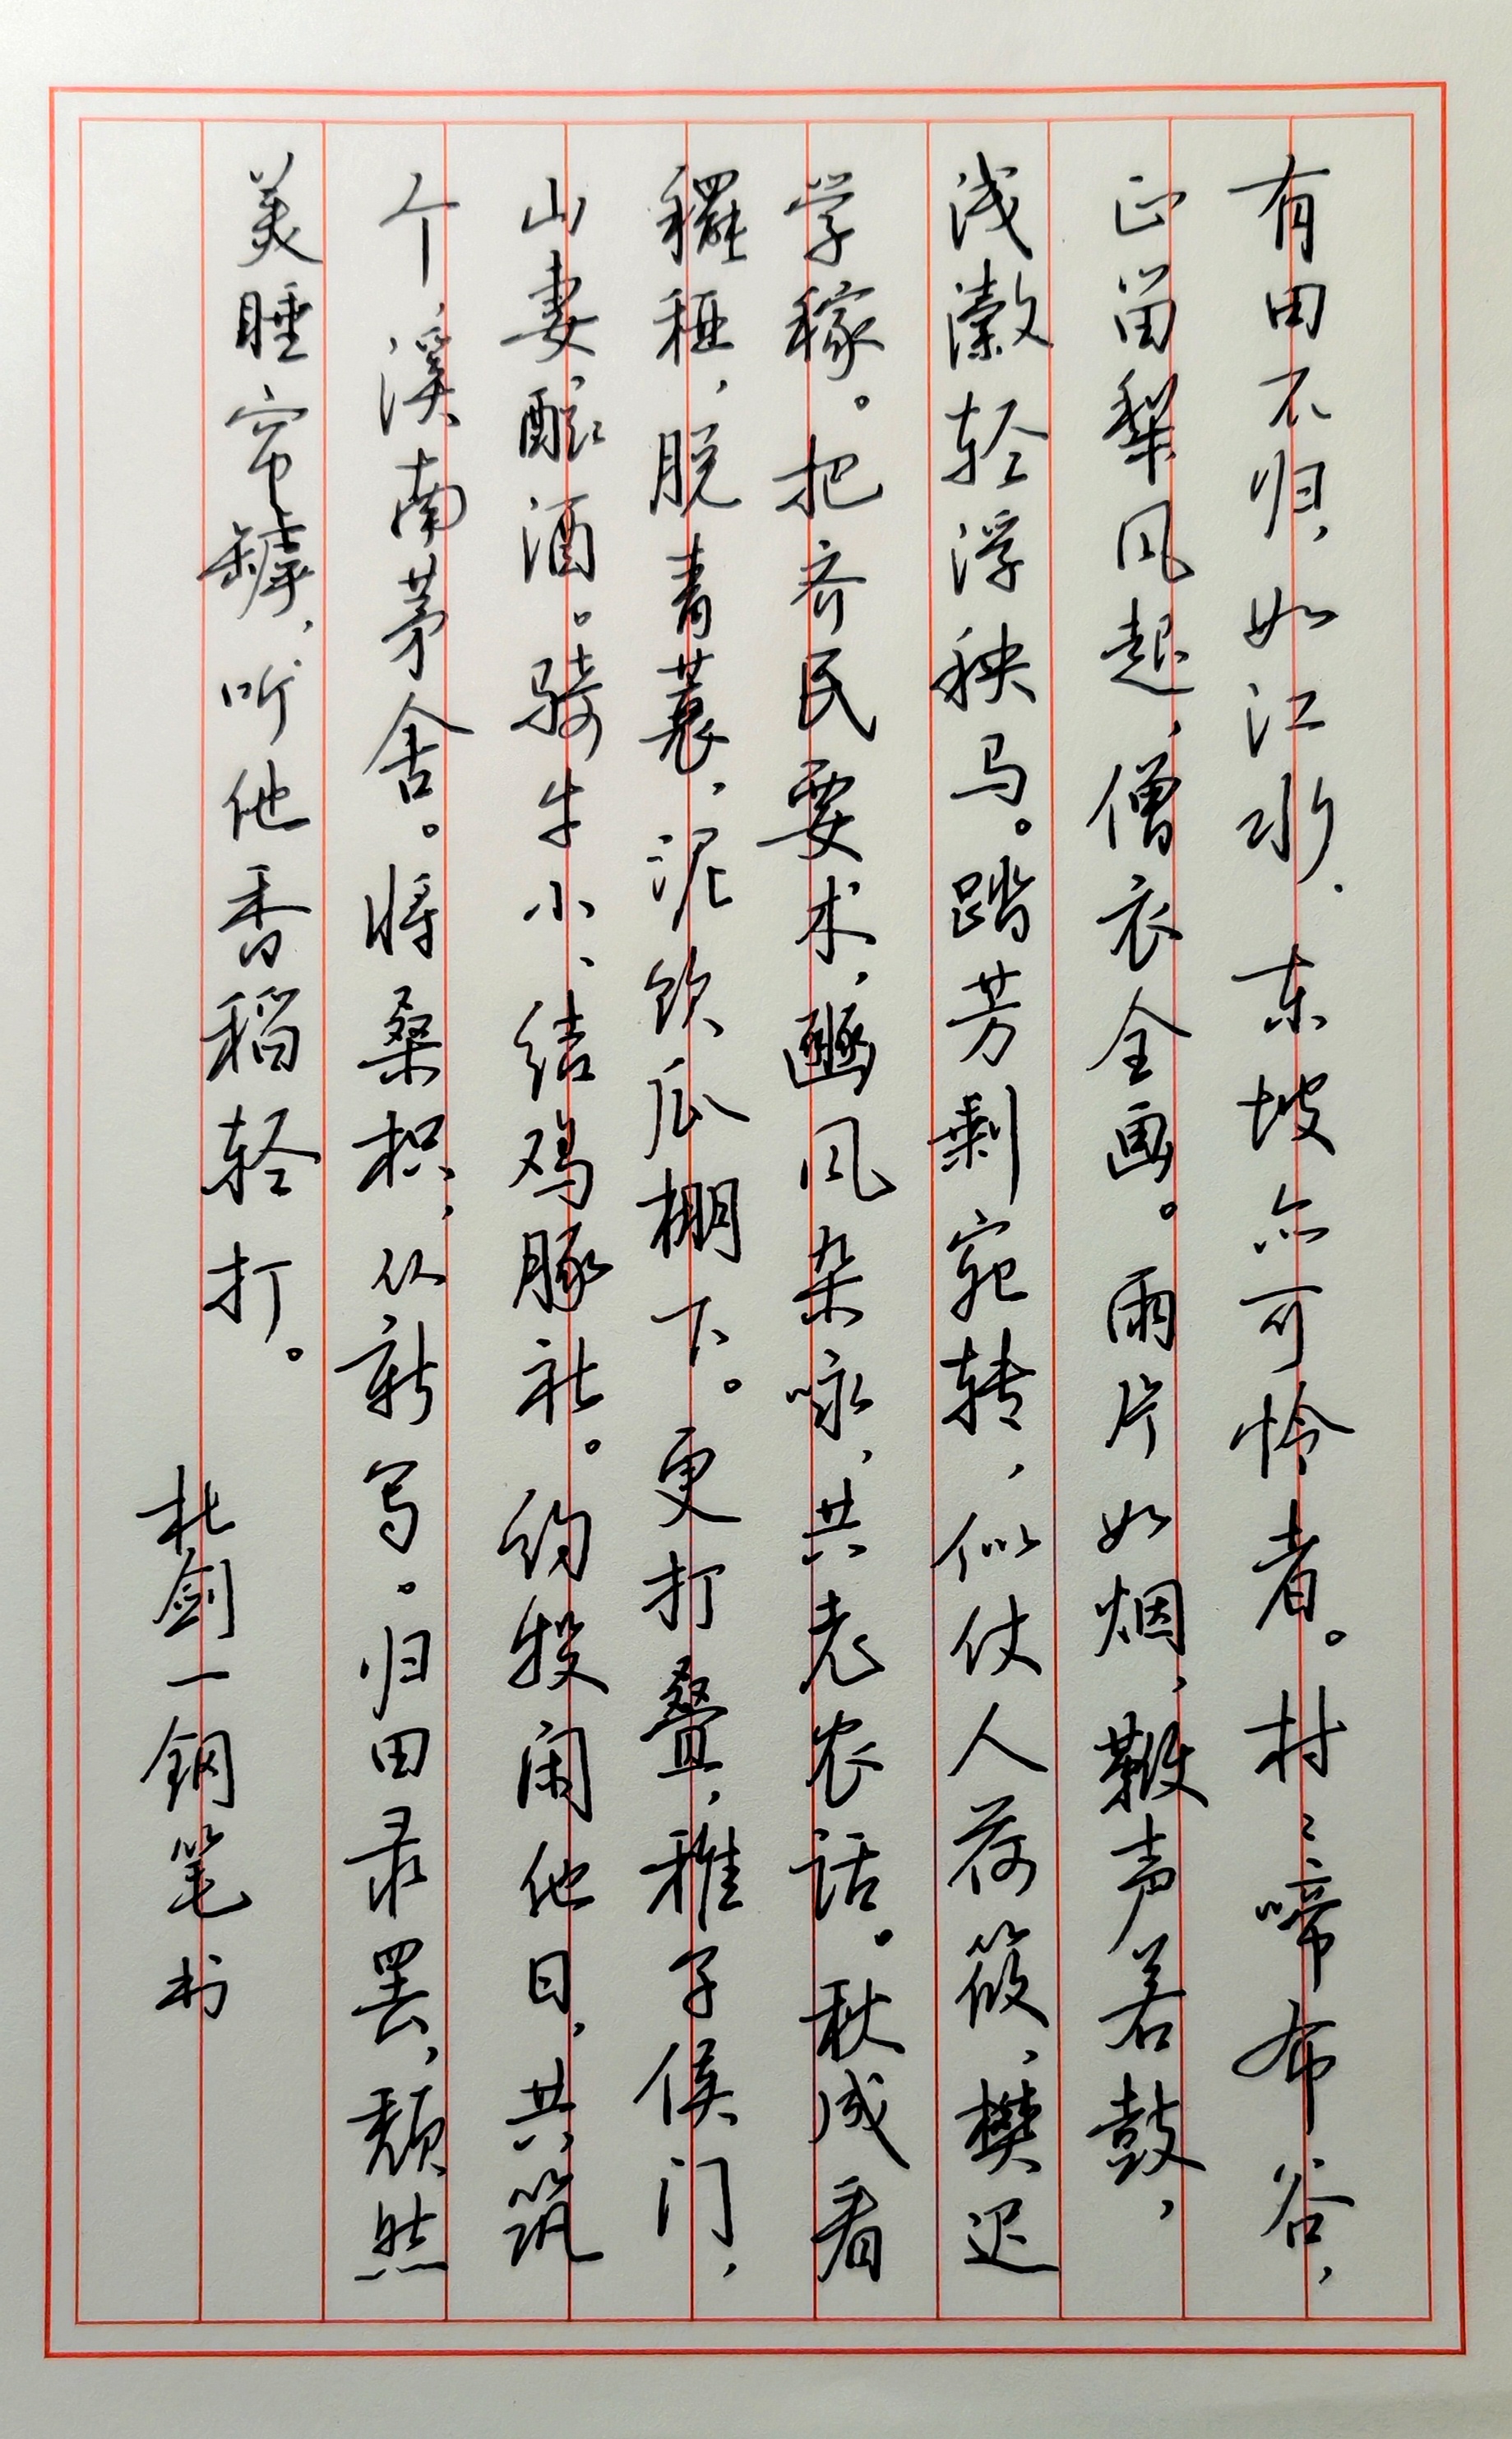 有田不归，如江水．东坡亦可怜者。村村啼布谷，
正畄犁风起，僧衣全画。雨片如烟，鞭声若鼓，
浅濑轻浮秧马。踏芳剩宛转，似仗人荷筱，樊迟
学稼。把齐民要术，豳风杂咏，共老农话。秋成看
䆉稏，脱青蓑，泥饮瓜棚下。更打叠，稚子候门，
山妻酿酒。骑牛小、结鸡豚社。约投闲他日，共筑
个，溪南茅舍。将桑枳，从新写。归田录罢，颓然
美睡帘罅，听他香稻轻打。
杜剑一钢笔书